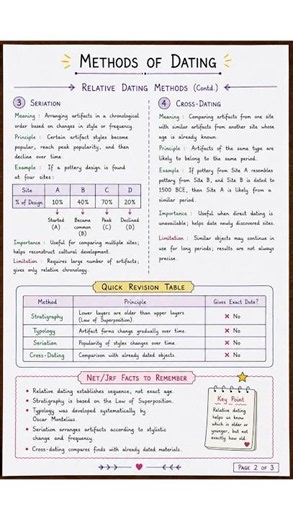 METHODS OF DATING
RELATIVE DATING METHODS (Contd.)
3 SERIATION
Meaning : Arranging artifacts in a chronological
order based on changes in style or frequency.
Principle : Certain artifact styles become
popular, reach peak popularity, and then
decline over time.
Example : If a pottery design is found
at four sites :
Site A B C D
% of Design 10% 40% 70% 20%
Started (A) Became common (B) Peak (C) Declined (D)
Importance : Useful for comparing multiple sites;
helps reconstruct cultural development.
Limitation : Requires large number of artifacts;
gives only relative chronology.
4 CROSS-DATING
Meaning : Comparing artifacts from one site
with similar artifacts from another site whose
age is already known.
Principle : Artifacts of the same type are
likely to belong to the same period.
Example : If pottery from Site A resembles
pottery from Site B, and Site B is dated to
1500 BCE, then Site A is likely from a
similar period.
Importance : Useful when direct dating is
unavailable; helps date newly discovered sites.
Limitation : Similar objects may continue in
use for long periods; results are not always
precise.
QUICK REVISION TABLE
Method Principle Gives Exact Date?
Stratigraphy Lower layers are older than upper layers (Law of Superposition). ✗ No
Typology Artifact forms change gradually over time. ✗ No
Seriation Popularity of styles changes over time. ✗ No
Cross-Dating Comparison with already dated objects. ✗ No
NET/JRF FACTS TO REMEMBER
• Relative dating establishes sequence, not exact age.
• Stratigraphy is based on the Law of Superposition.
• Typology was developed systematically by
Oscar Montelius.
• Seriation arranges artifacts according to stylistic
change and frequency.
• Cross-dating compares finds with already dated materials.
Key Point
Relative dating
helps us know
which is older or
younger, but not
exactly how old.
PAGE 2 OF 3